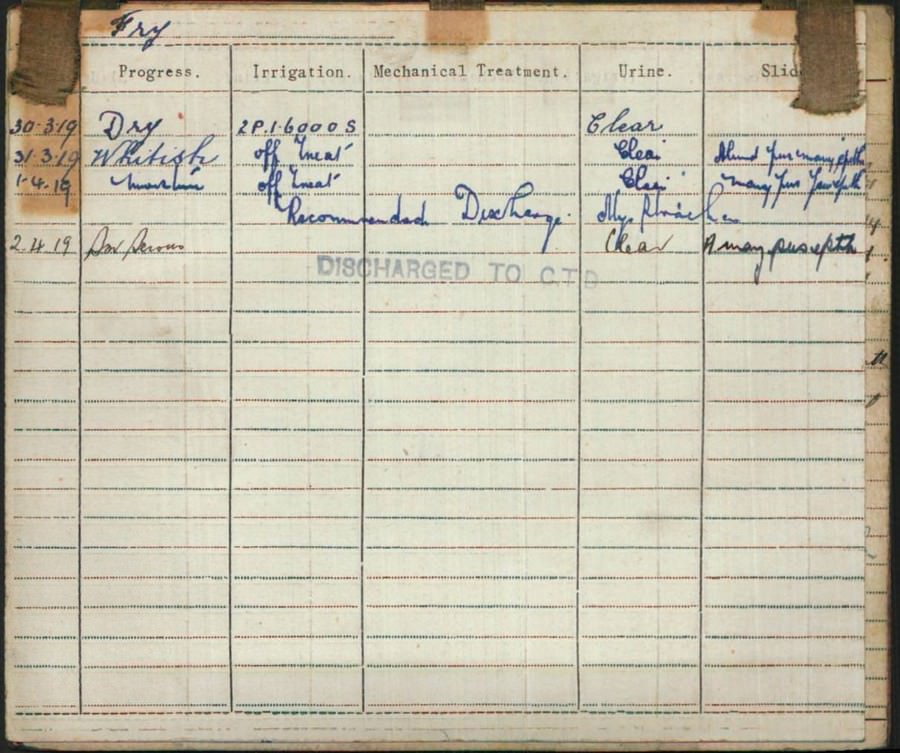 Fry
Progress. Irrigation. Mechanical Treatment. Urine. Slid
30-3-19 Dry 2 P. 1-6000 S Clear
31-3-19 Whitish off Treat Clear many epith
1-4-19 off Treat Clear many pus
Recommended Discharge.
2.4.19 Serous Clear A many pus epith
DISCHARGED TO C.T.D